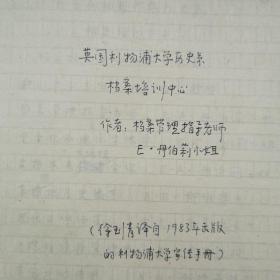 英国利物浦大学历史系
档案培训中心
作者：档案管理指导老师
E·丹伯莉小姐
（徐玉清译自1983年出版
的利物浦大学宣传手册）